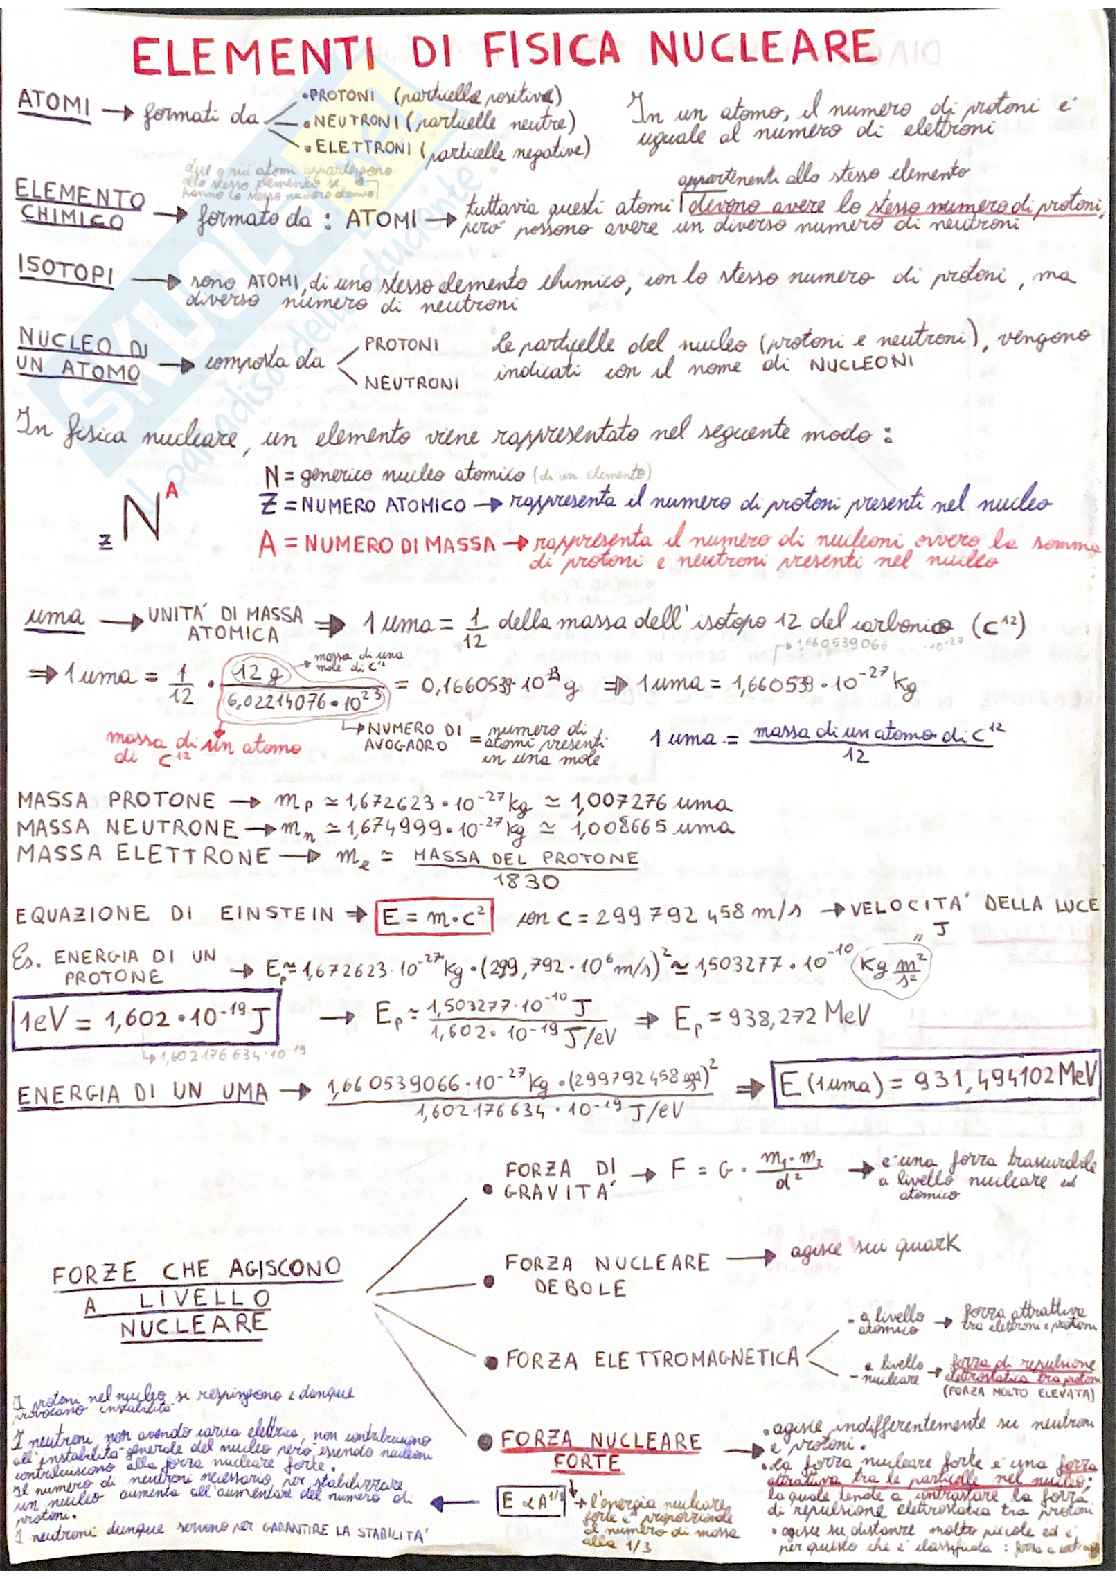 ELEMENTI DI FISICA NUCLEARE
ATOMI → formati da
• PROTONI (particelle positive)
• NEUTRONI (particelle neutre)
• ELETTRONI (particelle negative)
In un atomo, il numero di protoni e'
uguale al numero di elettroni
due o più atomi appartengono
allo stesso elemento se
hanno lo stesso numero atomico
ELEMENTO
CHIMICO → formato da : ATOMI →
appartenenti allo stesso elemento
tuttavia questi atomi devono avere lo stesso numero di protoni,
pero' possono avere un diverso numero di neutroni
ISOTOPI → sono ATOMI, di uno stesso elemento chimico, con lo stesso numero di protoni, ma
diverso numero di neutroni
NUCLEO DI
UN ATOMO → composta da
PROTONI
NEUTRONI
Le particelle del nucleo (protoni e neutroni), vengono
indicati con il nome di NUCLEONI
In fisica nucleare, un elemento viene rappresentato nel seguente modo :
Z N A
N = generico nucleo atomico (di un elemento)
Z = NUMERO ATOMICO → rappresenta il numero di protoni presenti nel nucleo
A = NUMERO DI MASSA → rappresenta il numero di nucleoni ovvero la somma
di protoni e neutroni presenti nel nucleo
uma → UNITA' DI MASSA
ATOMICA ⇒ 1 uma = 1/12 della massa dell'isotopo 12 del carbonio (C¹²)
1,660539066 · 10⁻²⁷
⇒ 1 uma = 1/12 · 12 g / 6,02214076 · 10²³ = 0,1660539 · 10²³ g ⇒ 1 uma = 1,660539 · 10⁻²⁷ kg
→ massa di una
mole di C¹²
massa di un atomo
di C¹²
→ NUMERO DI
AVOGADRO = numero di
atomi presenti
in una mole
1 uma = massa di un atomo di C¹² / 12
MASSA PROTONE → mp ≃ 1,672623 · 10⁻²⁷ kg ≃ 1,007276 uma
MASSA NEUTRONE → mn ≃ 1,674999 · 10⁻²⁷ kg ≃ 1,008665 uma
MASSA ELETTRONE → me ≃ MASSA DEL PROTONE / 1830
EQUAZIONE DI EINSTEIN ⇒ E = m · c² con c = 299 792 458 m/s → VELOCITA' DELLA LUCE
Es. ENERGIA DI UN
PROTONE → Ep ≃ 1,672623 · 10⁻²⁷ kg · (299,792 · 10⁶ m/s)² ≃ 1,503277 · 10⁻¹⁰ kg m²/s²
" J
1eV = 1,602 · 10⁻¹⁹ J → Ep ≃ 1,503277 · 10⁻¹⁰ J / 1,602 · 10⁻¹⁹ J/eV ⇒ Ep ≃ 938,272 MeV
↳ 1,602176634 · 10⁻¹⁹
ENERGIA DI UN UMA → 1,660539066 · 10⁻²⁷ kg · (299792458 )² / 1,602176634 · 10⁻¹⁹ J/eV ⇒ E (1 uma) = 931,494102 MeV
FORZE CHE AGISCONO
A LIVELLO
NUCLEARE
• FORZA DI
GRAVITA' → F = G · m₁ · m₂ / d² → e' una forza trascurabile
a livello nucleare ed
atomico
• FORZA NUCLEARE
DEBOLE → agisce sui quark
• FORZA ELETTROMAGNETICA
- a livello
atomico → forza attrattiva
tra elettroni e protoni
- a livello
nucleare → forza di repulsione
elettrostatica tra protoni
(FORZA MOLTO ELEVATA)
• FORZA NUCLEARE
FORTE
• agisce indifferentemente su neutroni
e protoni.
• la forza nucleare forte e' una forza
attrattiva tra le particelle nel nucleo;
la quale tende a contrastare la forza
di repulsione elettrostatica tra protoni
• agisce su distanze molto piccole ed e'
per questo che e' classificata : forza a
E ∝ A^1/3 → l'energia nucleare
forte e' proporzionale
al numero di massa
alla 1/3
I protoni nel nucleo si respingono e dunque
provocano instabilita'
I neutroni, non avendo carica elettrica, non contribuiscono
all'instabilita' generale del nucleo pero' essendo nucleoni
contribuiscono alla forza nucleare forte.
il numero di neutroni necessario per stabilizzare
un nucleo aumenta all'aumentare del numero di
protoni.
I neutroni dunque servono per GARANTIRE LA STABILITA'